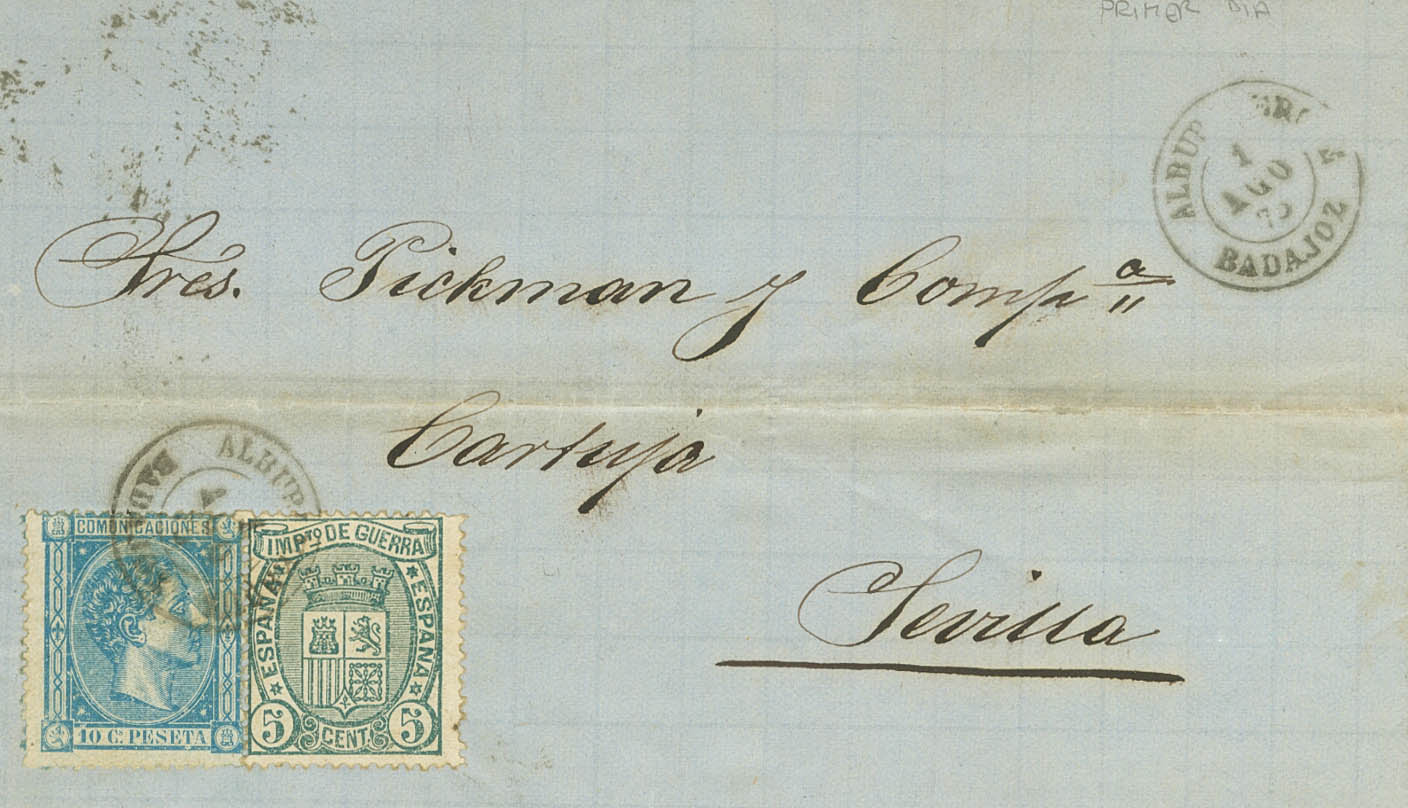 PRIMER DIA
BADAJOZ
1
AGO
75
Srés. Pickman y Comp.ª
Cartuja
Sevilla
COMUNICACIONES
10 Cs. PESETA
IMPTO DE GUERRA
ESPAÑA
ESPAÑA
5 CENT. 5